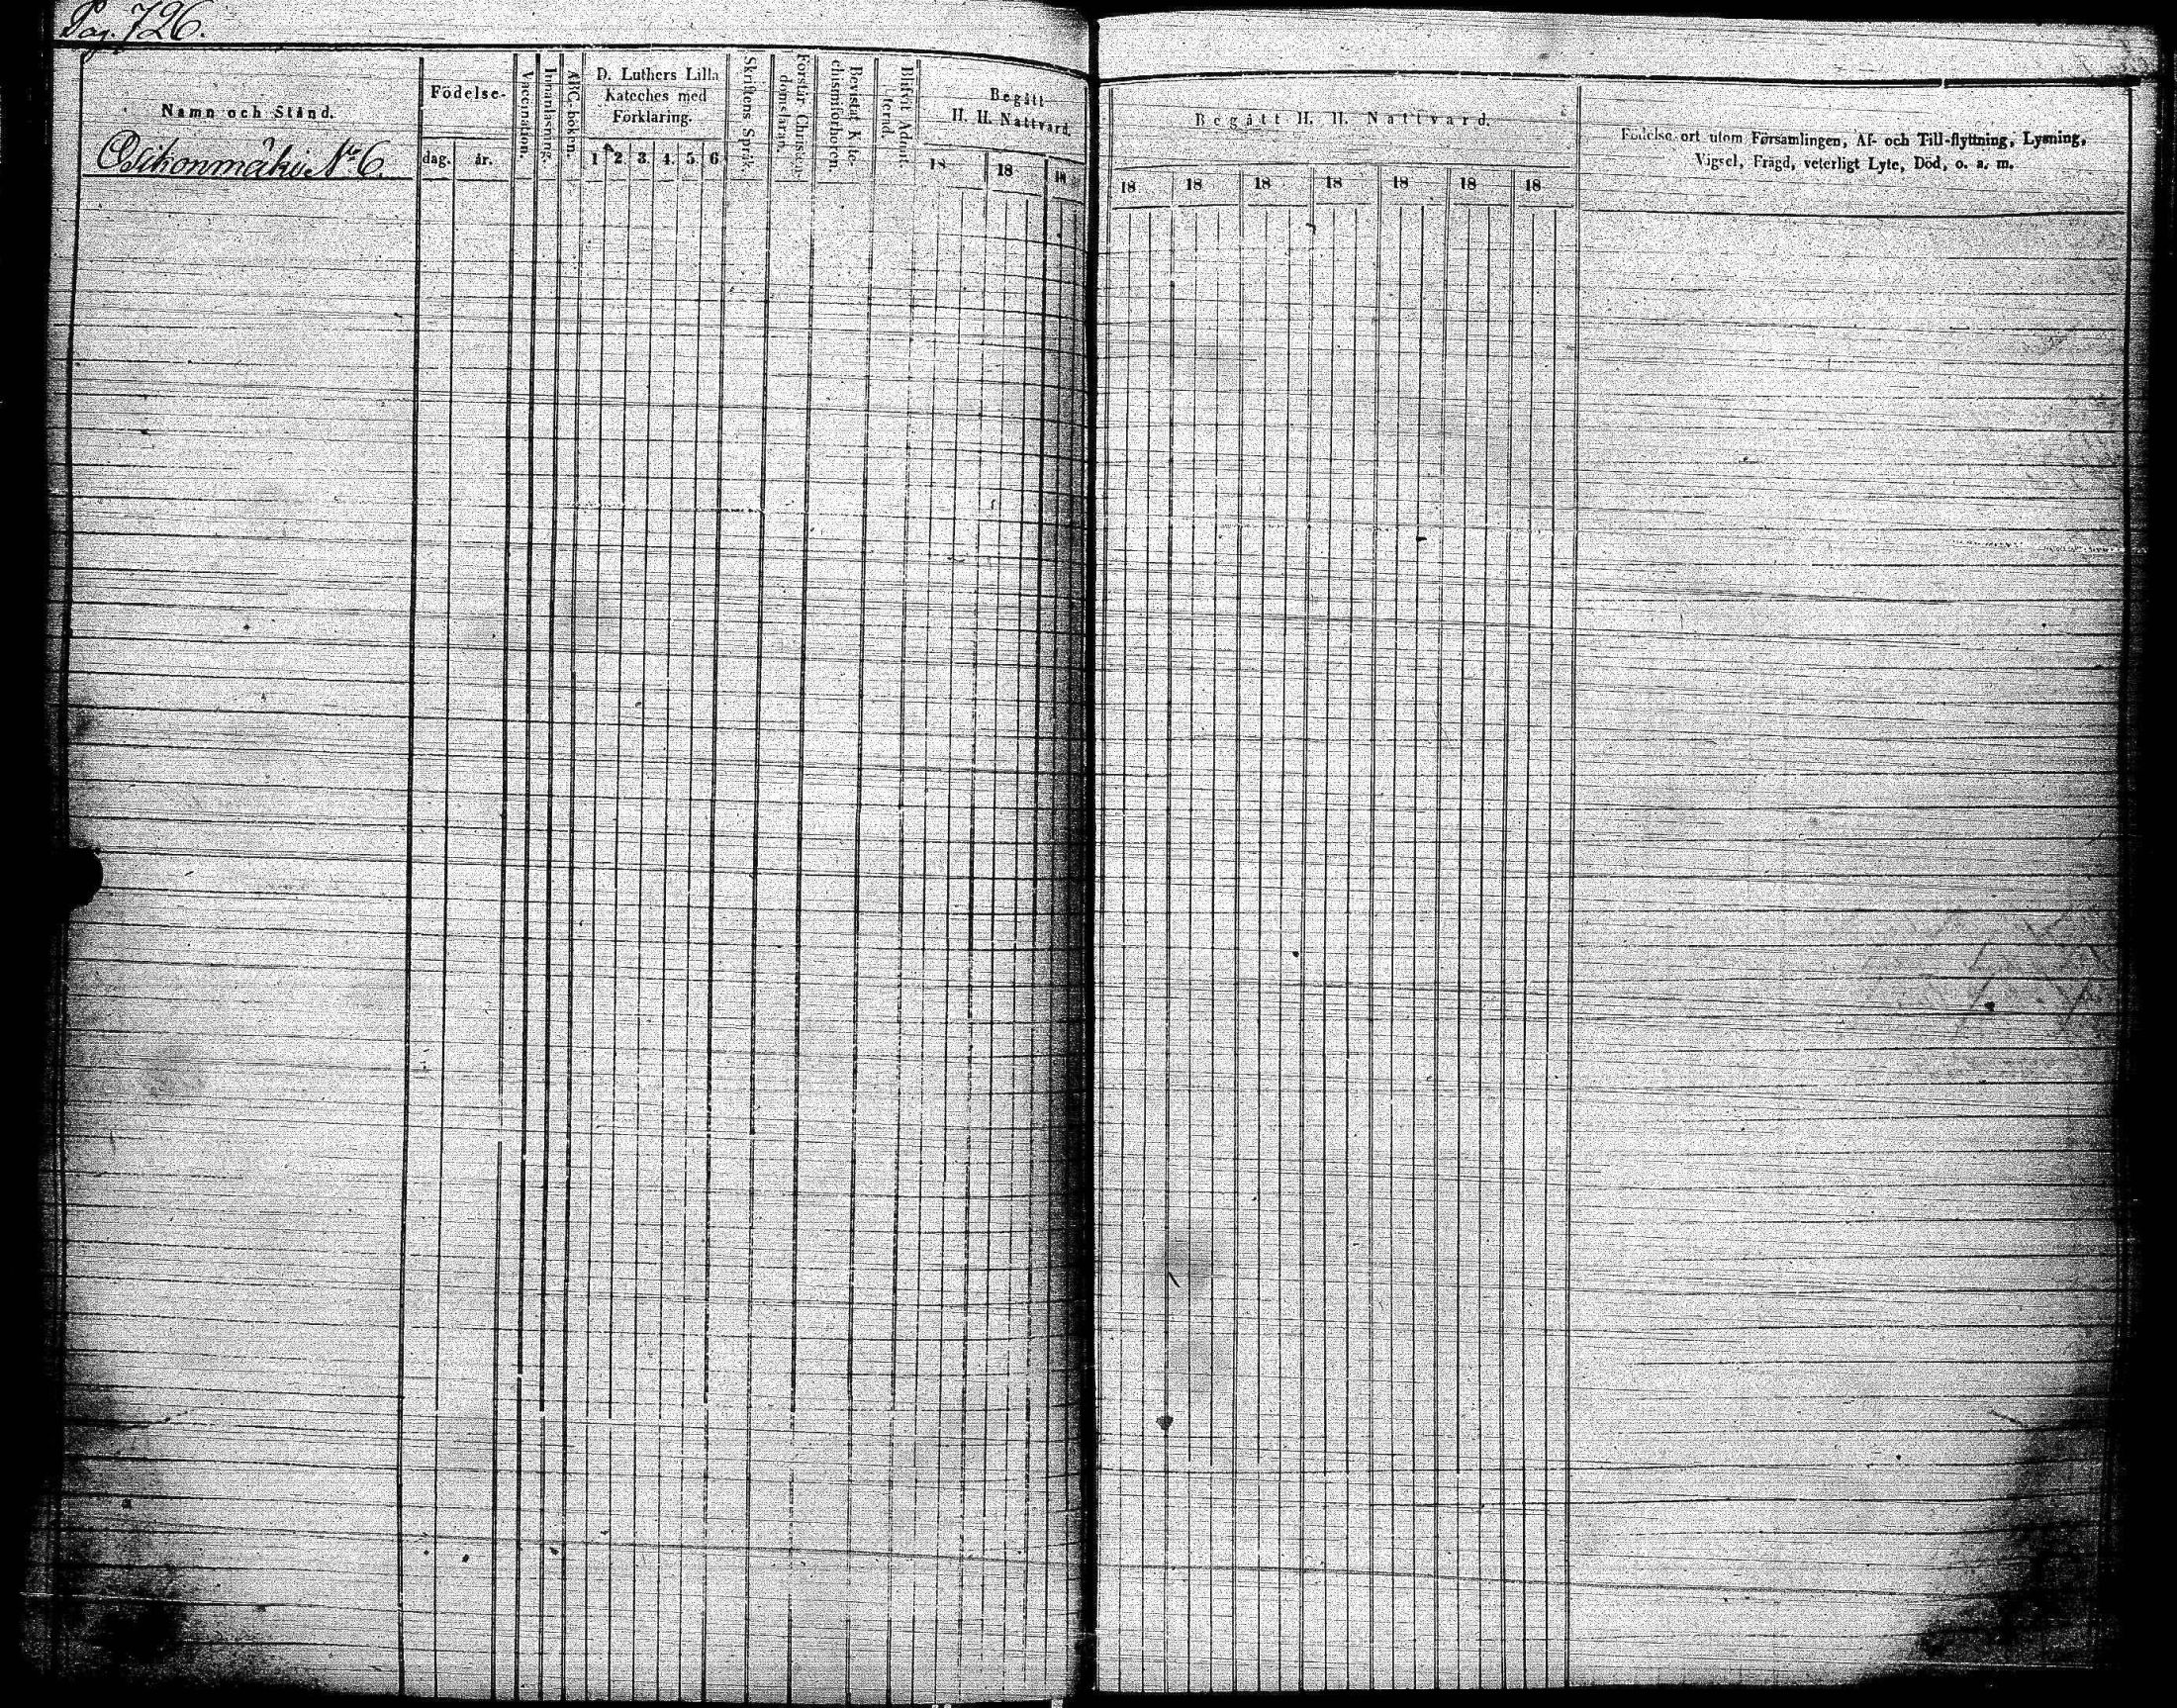 Pag. 726.
Namn och Stånd.
Födelse-
dag.
år.
Vaccination.
Innanläsning.
ABC-boken.
D. Luthers Lilla
Kateches med
Förklaring.
1 2. 3. 4. 5. 6
Skriftens Språk.
Förstår Christen-
domsläran.
Bevistat Kate-
chismiförhören.
Blifvit Admit-
terad.
Begått
H. H. Nattvard.
18 18 18
Begått H. H. Nattvard.
18 18 18 18 18 18 18
Födelse-ort utom Församlingen, Af- och Till-flyttning, Lysning,
Vigsel, Frägd, veterligt Lyte, Död, o. a. m.
No 6.